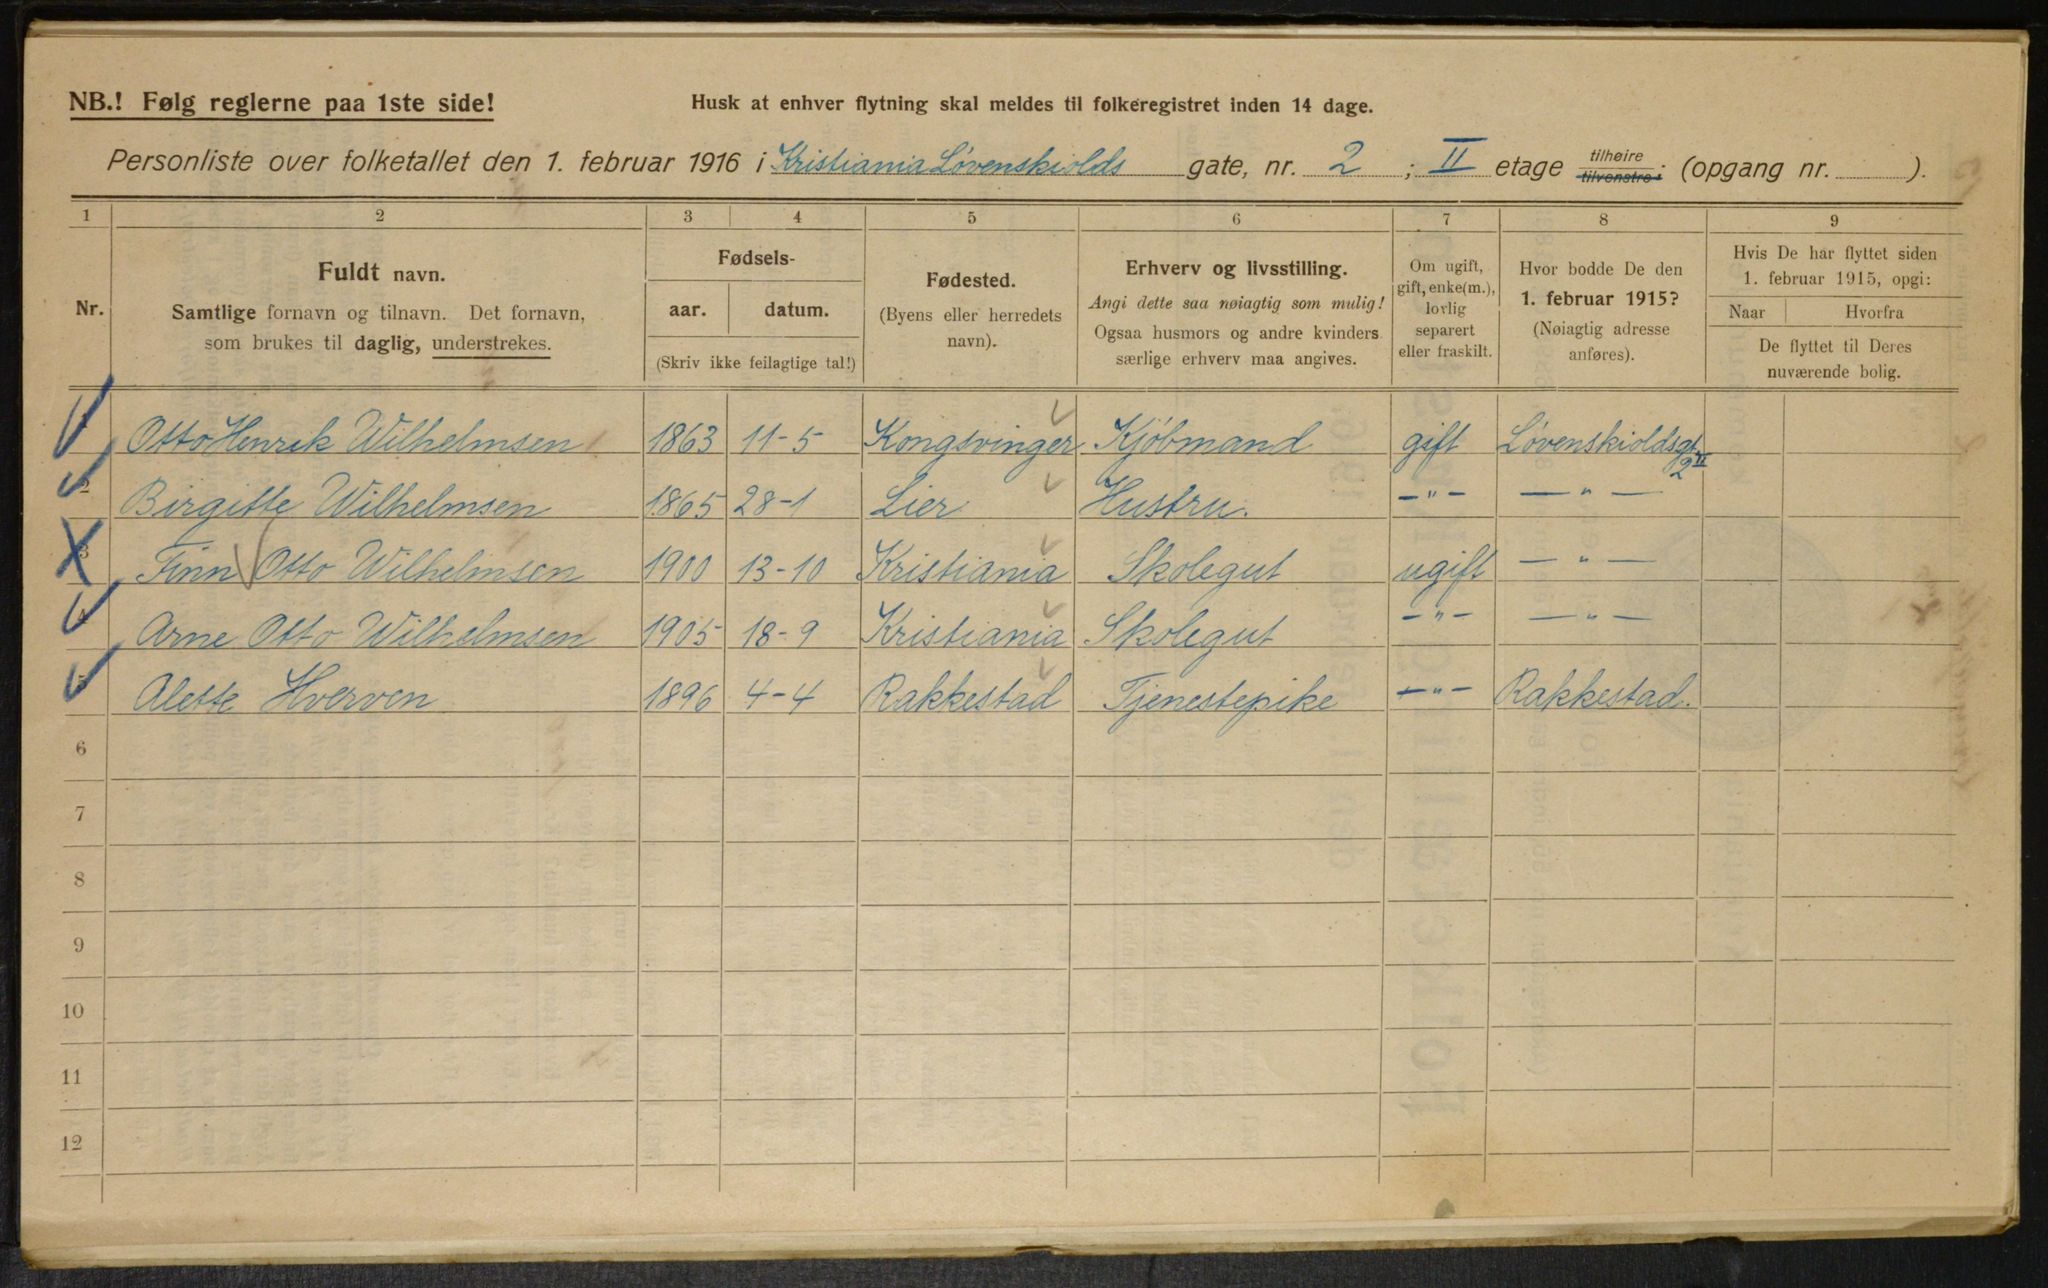 NB.! Følg reglerne paa 1ste side!
Husk at enhver flytning skal meldes til folkeregistret inden 14 dage.
Personliste over folketallet den 1. februar 1916 i Kristiania Løvenskiolds gate, nr. 2 ; II etage tilhøire tilvenstre ; (opgang nr. ).
1 2 3 4 5 6 7 8 9
Nr.
Fuldt navn.
Samtlige fornavn og tilnavn. Det fornavn,
som brukes til daglig, understrekes.
Fødsels-
aar. datum.
(Skriv ikke feilagtige tal!)
Fødested.
(Byens eller herredets
navn).
Erhverv og livsstilling.
Angi dette saa nøiagtig som mulig!
Ogsaa husmors og andre kvinders
særlige erhverv maa angives.
Om ugift,
gift, enke(m.),
lovlig
separert
eller fraskilt.
Hvor bodde De den
1. februar 1915?
(Nøiagtig adresse
anføres).
Hvis De har flyttet siden
1. februar 1915, opgi:
Naar Hvorfra
De flyttet til Deres
nuværende bolig.
Otto Henrik Wilhelmsen 1863 11-5 Kongsvinger Kjøbmand gift Løvenskioldsgt. 2 II
2 Birgitte Wilhelmsen 1865 28-1 Lier Hustru. -"- -"-
3 Finn Otto Wilhelmsen 1900 13-10 Kristiania Skolegut ugift -"-
4 Arne Otto Wilhelmsen 1905 18-9 Kristiania Skolegut -"- -"-
5 Alette Hverven 1896 4-4 Rakkestad Tjenestepike -"- Rakkestad.
6
7
8
9
10
11
12